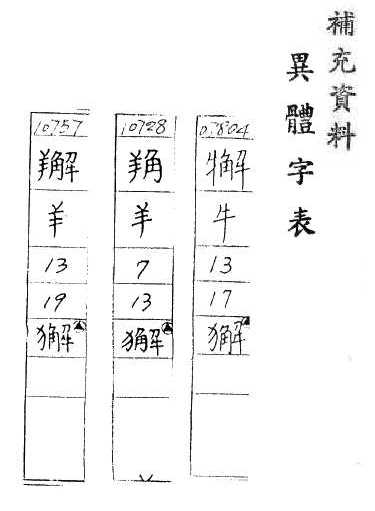 補充資料
異體字表
07804
牛
13
17
獬
10728
羊
7
13
獬
10757
羊
13
19
獬